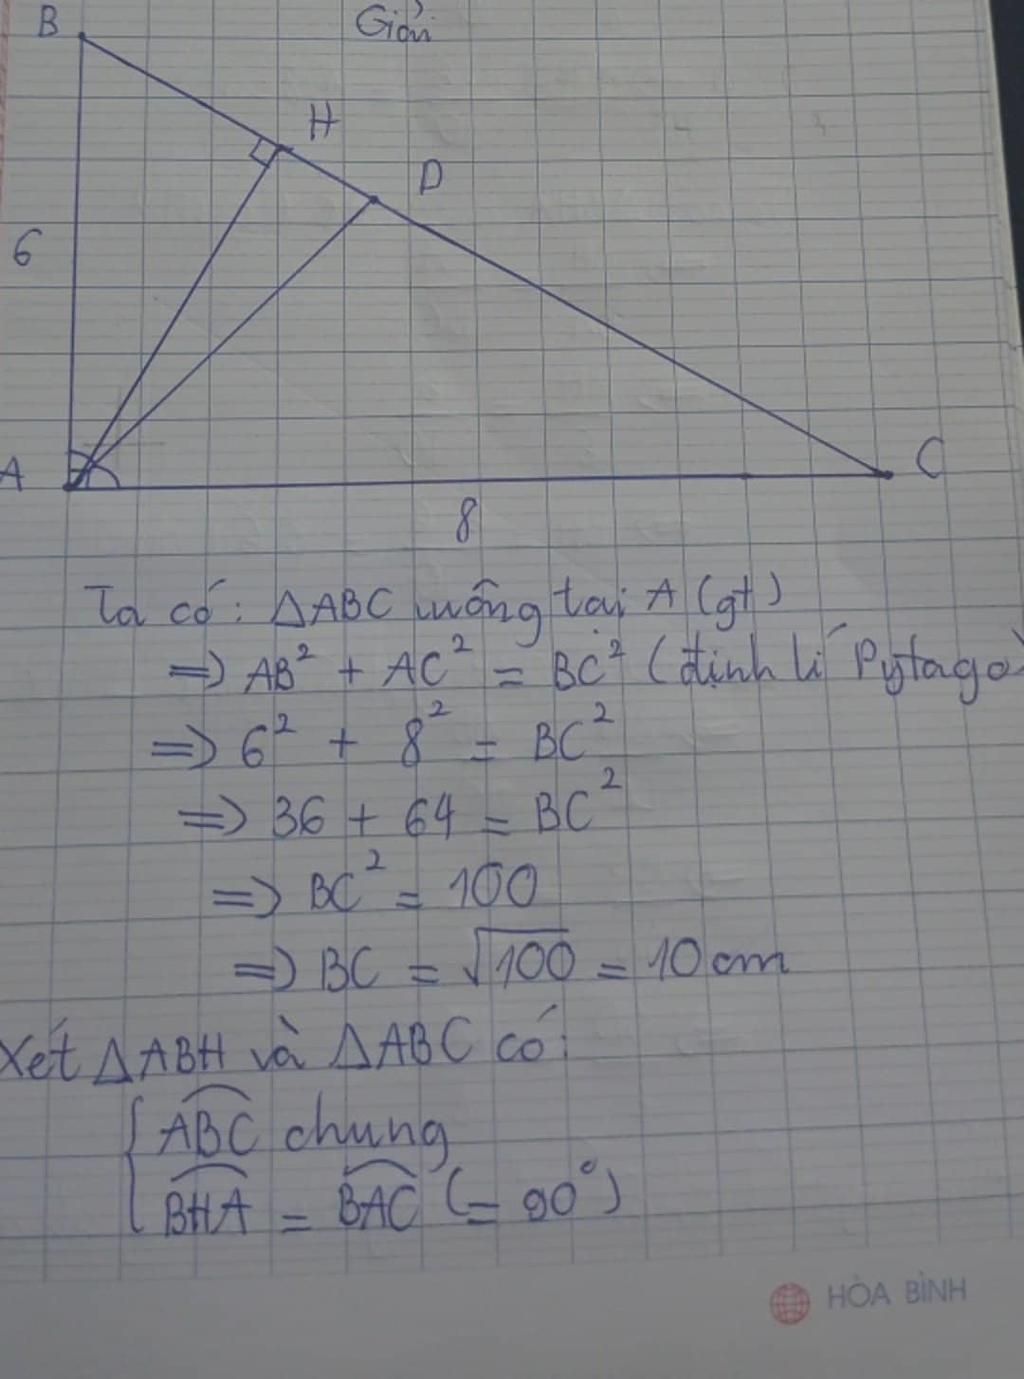 Giải
B
H
D
6
A
C
8
Ta có: ΔABC vuông tại A (gt)
=> AB² + AC² = BC² (định lí Pytago)
=> 6² + 8² = BC²
=> 36 + 64 = BC²
=> BC² = 100
=> BC = √100 = 10cm
Xét ΔABH và ΔABC có:
ABC chung
BHA = BAC (= 90°)
HÒA BÌNH